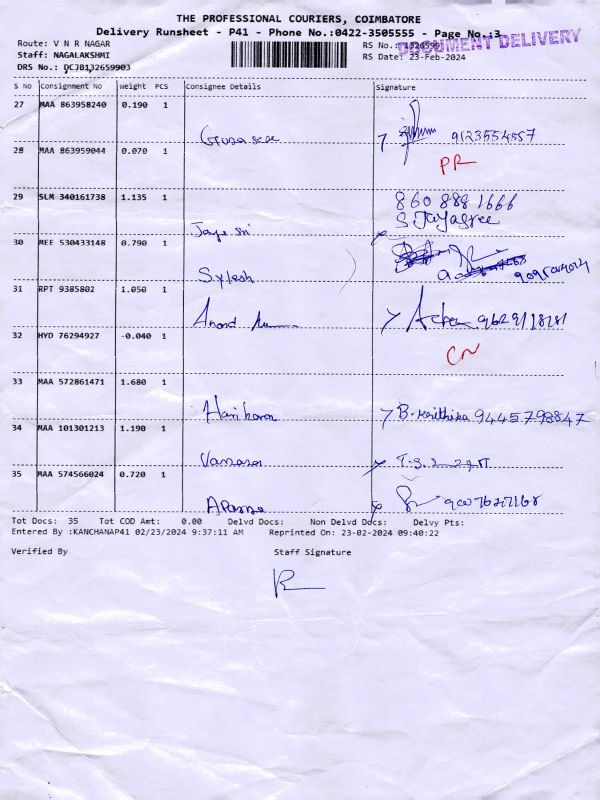 THE PROFESSIONAL COURIERS, COIMBATORE
Delivery Runsheet - P41 - Phone No.:0422-3505555 - Page No.:3
DOCUMENT DELIVERY
Route: V N R NAGAR
RS No.:
Staff: NAGALAKSHMI
RS Date: 23-Feb-2024
DRS No.: DCJB132659903
S No Consignment No Weight PCS Consignee Details Signature
27 MAA 863958240 0.190 1
9123554557
28 MAA 863959044 0.070 1
PR
29 SLM 340161738 1.135 1
860 888 1666
S. Jayasree
Jaya Sri
30 MEE 530433148 0.790 1
Sylesh
31 RPT 9385802 1.050 1
Anand
32 HYD 76294927 -0.040 1
CN
33 MAA 572861471 1.680 1
Hariharan B. Keirthika 9445793847
34 MAA 101301213 1.190 1
35 MAA 574566024 0.720 1
Tot Docs: 35 Tot COD Amt: 0.00 Delvd Docs: Non Delvd Docs: Delvy Pts:
Entered By :KANCHANAP41 02/23/2024 9:37:11 AM Reprinted On: 23-02-2024 09:40:22
Verified By Staff Signature